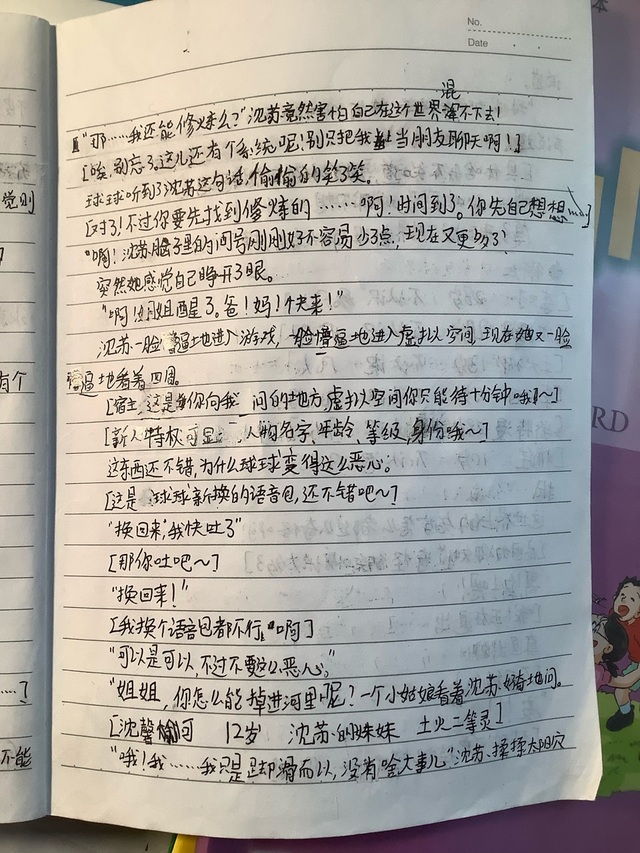 No.
Date
混
"那……我还能修炼么?"沈苏竟然害怕自己在这个世界混不下去!
[唉,别忘了。这儿还有个系统呢!别只把我当朋友聊天啊!]
球球听到了沈苏这句话,偷偷的笑了笑。
[对了!不过你要先找到修炼的……啊!时间到了。你先自己想想……]
"啊!沈苏脑子里的问号刚刚好不容易少了点,现在又更多了?
突然她感觉自己睁开了眼。
"啊!姐姐醒了。爸!妈!快来!"
沈苏一脸懵逼地进入游戏,一脸懵逼地进入虚拟空间,现在她又一脸
懵逼地看着四周。
[宿主,这是你向我 问的地方,虚拟空间你只能待十分钟哦~]
[新人特权可显 人物名字、年龄、等级,身份哦~]
这东西还不错,为什么球球变得这么恶心。
[这是 球球新换的语音包,还不错吧~]
"换回来,我快吐了"
[那你吐吧~]
"换回来!"
[我换个语音包都不行,啊]
"可以是可以,不过不要这么恶心,"
"姐姐,你怎么能掉进河里呢?一个小姑娘看着沈苏好奇地问。
[沈馨 可 12岁 沈苏的妹妹 土火二等灵]
"哦!我……我只是脚滑而以,没有啥大事儿"沈苏、揉揉太阳穴
觉则
有个
……]
不能
RD
本